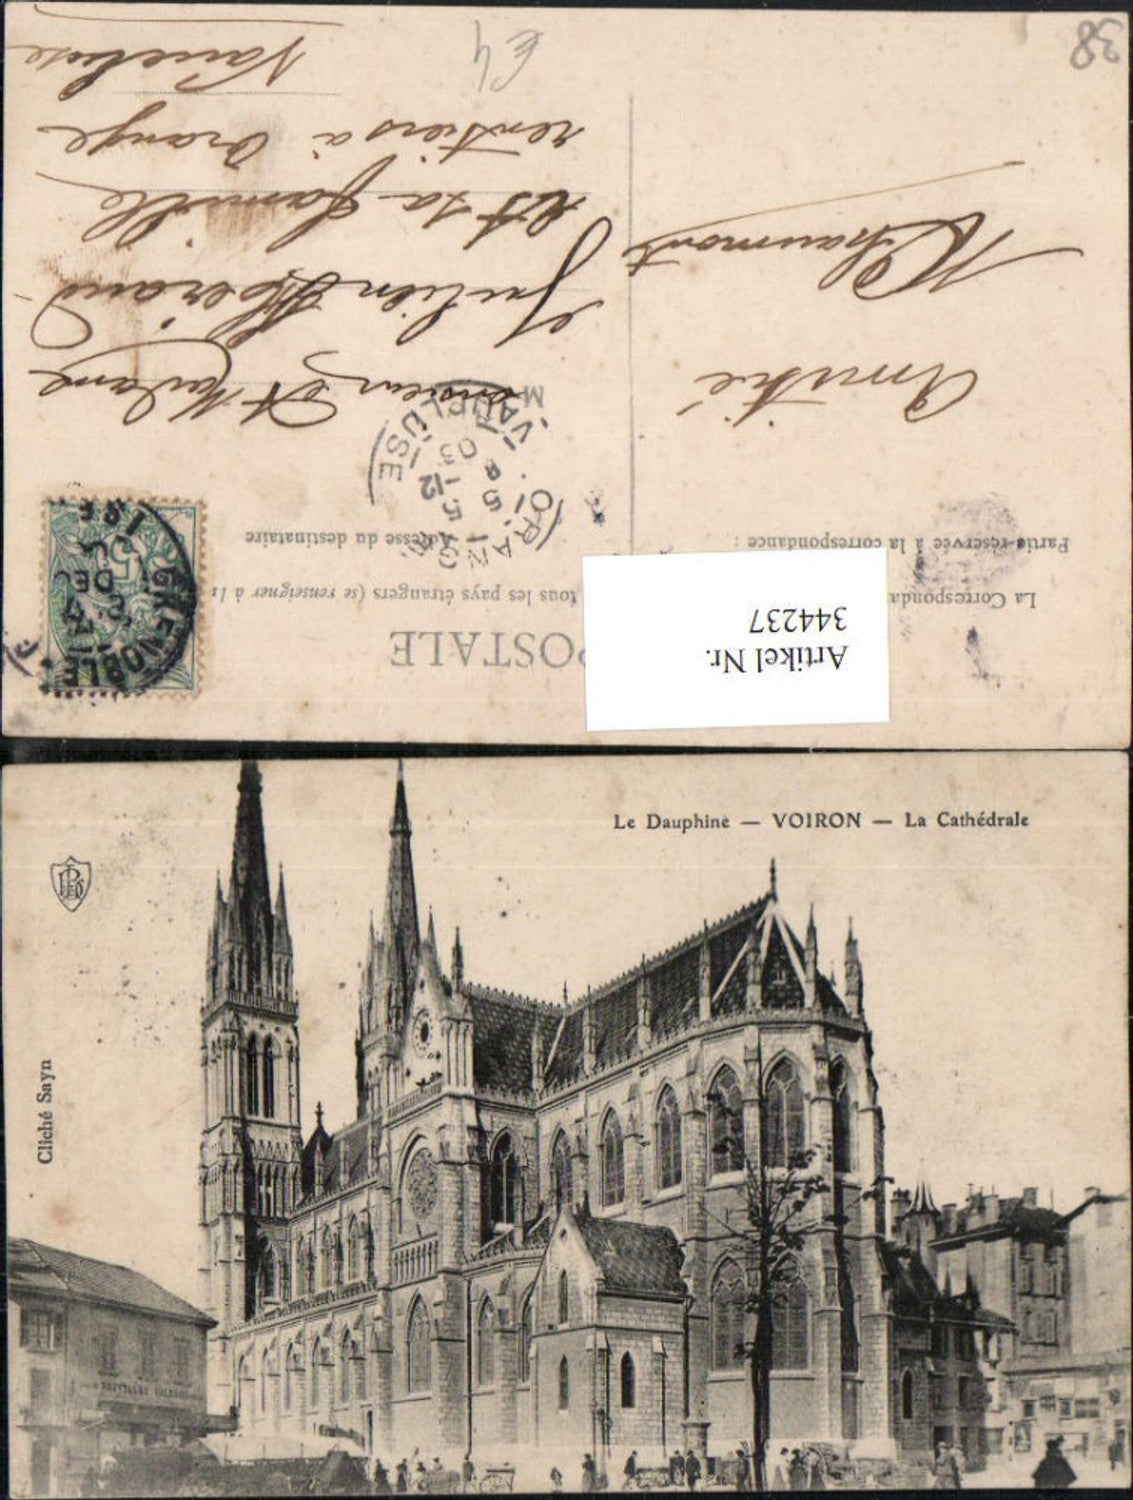 38
€4
POSTALE
La Corresponda
tous les pays étrangers (se renseigner à l
Partie réservée à la correspondance :
Adresse du destinataire
Artikel Nr.
344237
GRENOBLE
DEC
ORANGE
VAUCLUSE
5 -12
03
Amitié
Chaumont
Monsieur et Madame
Julien
et sa famille
rentiers à Orange
Vaucluse
Le Dauphiné — VOIRON — La Cathédrale
Cliché Sayn